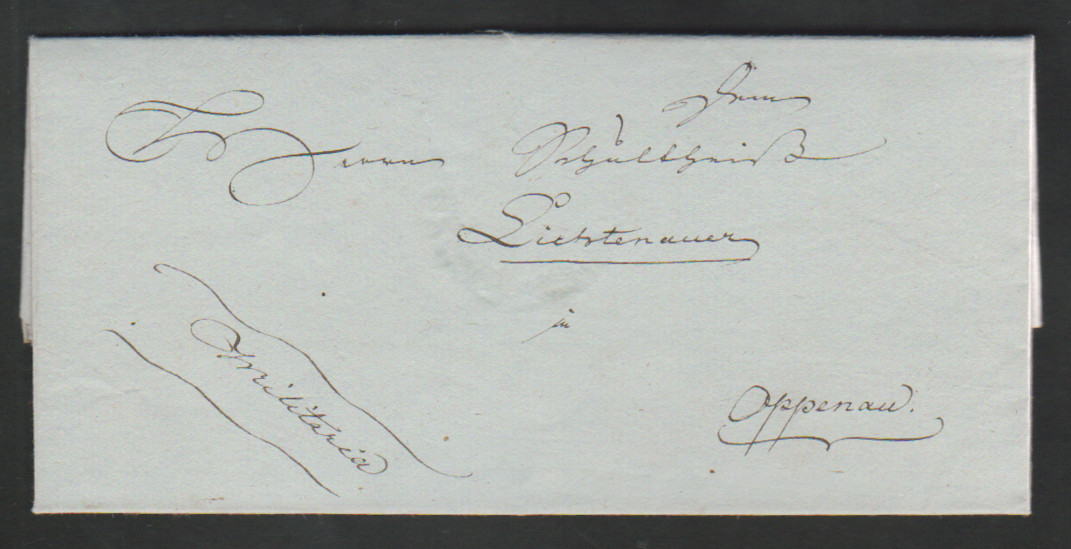 Herrn Schultheiß
Lichtenauer
in
Oppenau.
Militaria